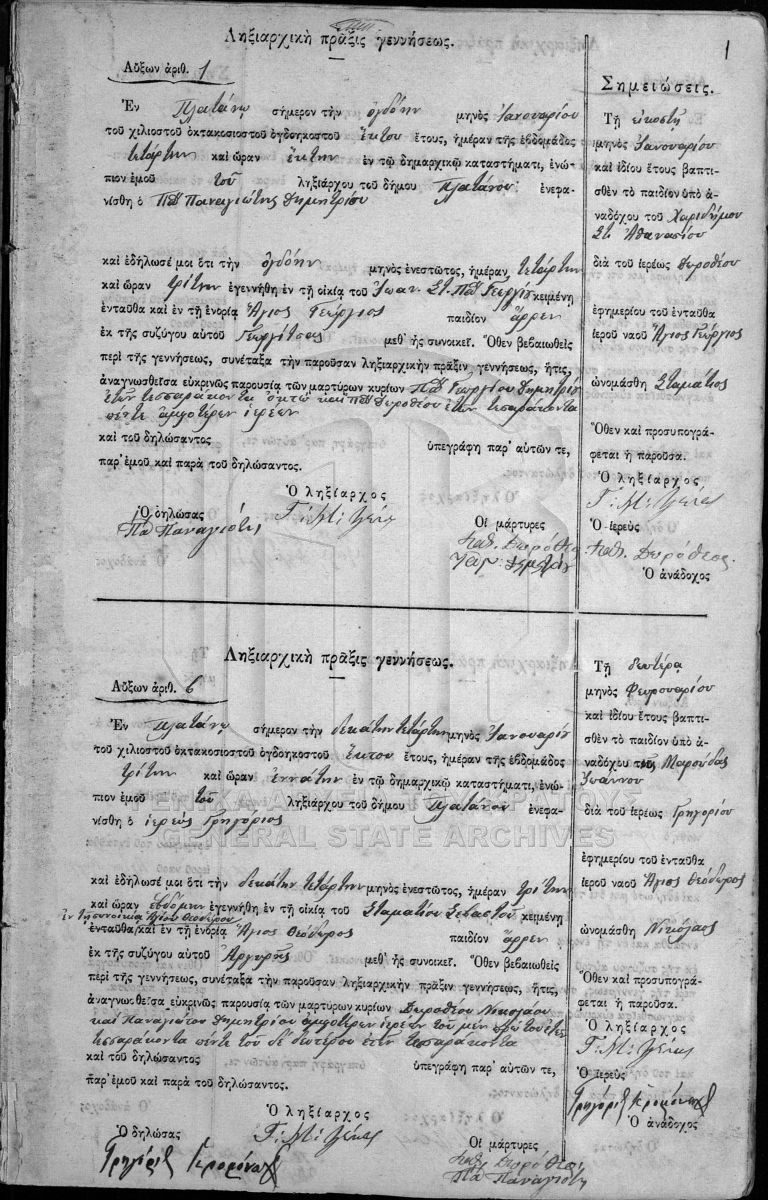 Ληξιαρχικὴ πρᾶξις γεννήσεως.
1
Αὔξων ἀριθ. 1
Ἐν Πλατάνῳ σήμερον τὴν ὀγδόην μηνὸς Ἰανουαρίου
τοῦ χιλιοστοῦ ὀκτακοσιοστοῦ ὀγδοηκοστοῦ ἕκτου ἔτους, ἡμέραν τῆς ἑβδομάδος
τετάρτην καὶ ὥραν ἕκτην ἐν τῷ δημαρχικῷ καταστήματι, ἐνώ-
πιον ἐμοῦ τοῦ ληξιάρχου τοῦ δήμου Πλατάνου ἐνεφα-
νίσθη ὁ Παπᾶ Παναγιώτης Δημητρίου
καὶ ἐδήλωσέ μοι ὅτι τὴν ὀγδόην μηνὸς ἐνεστῶτος, ἡμέραν τετάρτην
καὶ ὥραν τρίτην ἐγεννήθη ἐν τῇ οἰκίᾳ τοῦ Ἰωαν. Στ. Παπᾶ Γεωργίου κειμένῃ
ἐνταῦθα καὶ ἐν τῇ ἐνορίᾳ Ἅγιος Γεώργιος παιδίον ἄρρεν
ἐκ τῆς συζύγου αὐτοῦ Γεωργίτσας μεθ᾽ ἧς συνοικεῖ. Ὅθεν βεβαιωθεὶς
περὶ τῆς γεννήσεως, συνέταξα τὴν παροῦσαν ληξιαρχικὴν πρᾶξιν γεννήσεως, ἥτις,
ἀναγνωσθεῖσα εὐκρινῶς παρουσίᾳ τῶν μαρτύρων κυρίων Παπᾶ Γεωργίου Δημητρίου
ἐτῶν τεσσαράκοντα ὀκτὼ καὶ Παπᾶ Δωροθέου ἐτῶν τεσσαράκοντα
πέντε ἀμφοτέρων ἱερέων
καὶ τοῦ δηλώσαντος ὑπεγράφη παρ᾽ αὐτῶν τε,
παρ᾽ ἐμοῦ καὶ παρὰ τοῦ δηλώσαντος.
Ὁ ληξίαρχος
Γ. Μ.
Ὁ δηλώσας
Πα Παναγιότις
Οἱ μάρτυρες
παπ. Δωρόθεος
Σημειώσεις.
Τῇ εἰκοστῇ
μηνὸς Ἰανουαρίου
καὶ ἰδίου ἔτους βαπτι-
σθὲν τὸ παιδίον ὑπὸ ἀ-
ναδόχου τοῦ Χαριδήμου
Στ. Ἀθανασίου
διὰ τοῦ ἱερέως Δωροθέου
ἐφημερίου τοῦ ἐνταῦθα
ἱεροῦ ναοῦ Ἅγιος Γεώργιος
ὠνομάσθη Σταμάτιος
Ὅθεν καὶ προσυπογρά-
φεται ἡ παροῦσα.
Ὁ ληξίαρχος
Γ. Μ.
Ὁ ἱερεὺς
παπ. Δωρόθεος
Ὁ ἀνάδοχος
Ληξιαρχικὴ πρᾶξις γεννήσεως.
Αὔξων ἀριθ. 6
Ἐν Πλατάνῳ σήμερον τὴν δεκάτην τετάρτην μηνὸς Ἰανουαρίου
τοῦ χιλιοστοῦ ὀκτακοσιοστοῦ ὀγδοηκοστοῦ ἕκτου ἔτους, ἡμέραν τῆς ἑβδομάδος
τρίτην καὶ ὥραν ἐννάτην ἐν τῷ δημαρχικῷ καταστήματι, ἐνώ-
πιον ἐμοῦ τοῦ ληξιάρχου τοῦ δήμου Πλατάνου ἐνεφα-
νίσθη ὁ ἱερεὺς Γρηγόριος
καὶ ἐδήλωσέ μοι ὅτι τὴν δεκάτην τετάρτην μηνὸς ἐνεστῶτος, ἡμέραν τρίτην
καὶ ὥραν ἑβδόμην ἐγεννήθη ἐν τῇ οἰκίᾳ τοῦ Σταματίου Σεβαστοῦ κειμένῃ
ἐν τῇ συνοικίᾳ Ἁγίου Θεοδώρου
ἐνταῦθα καὶ ἐν τῇ ἐνορίᾳ Ἅγιος Θεόδωρος παιδίον ἄρρεν
ἐκ τῆς συζύγου αὐτοῦ Ἀργυρῆς μεθ᾽ ἧς συνοικεῖ. Ὅθεν βεβαιωθεὶς
περὶ τῆς γεννήσεως, συνέταξα τὴν παροῦσαν ληξιαρχικὴν πρᾶξιν γεννήσεως, ἥτις,
ἀναγνωσθεῖσα εὐκρινῶς παρουσίᾳ τῶν μαρτύρων κυρίων Δωροθέου Νικολάου
καὶ Παναγιώτου Δημητρίου ἀμφοτέρων ἱερέων τοῦ μὲν πρώτου ἐτῶν
τεσσαράκοντα πέντε τοῦ δὲ δευτέρου ἐτῶν τεσσαράκοντα
καὶ τοῦ δηλώσαντος ὑπεγράφη παρ᾽ αὐτῶν τε,
παρ᾽ ἐμοῦ καὶ παρὰ τοῦ δηλώσαντος.
Ὁ ληξίαρχος
Γ. Μ.
Ὁ δηλώσας
Οἱ μάρτυρες
παπ. Δωρόθεος
Πα Παναγιότις
Τῇ δευτέρᾳ
μηνὸς Φεβρουαρίου
καὶ ἰδίου ἔτους βαπτι-
σθὲν τὸ παιδίον ὑπὸ ἀ-
ναδόχου τῆς Μαρούδας
Ἰωάννου
διὰ τοῦ ἱερέως Γρηγορίου
ἐφημερίου τοῦ ἐνταῦθα
ἱεροῦ ναοῦ Ἅγιος Θεόδωρος
ὠνομάσθη Νικόλαος
Ὅθεν καὶ προσυπογρά-
φεται ἡ παροῦσα.
Ὁ ληξίαρχος
Γ. Μ.
Ὁ ἱερεὺς
Ὁ ἀνάδοχος
GENERAL STATE ARCHIVES